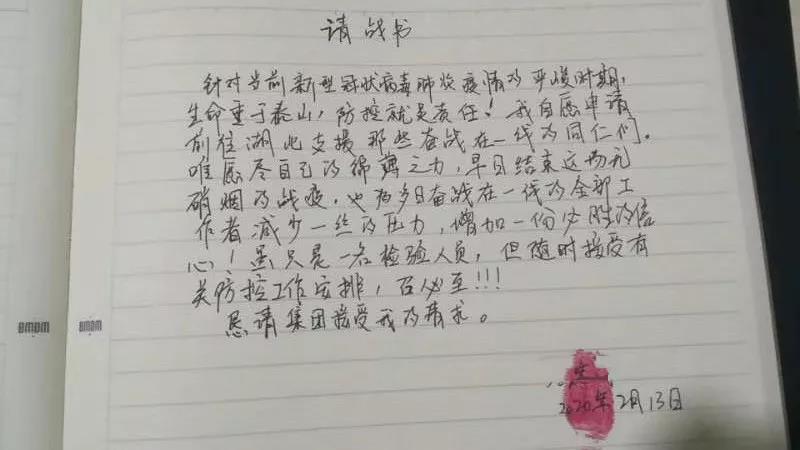 请战书
针对当前新型冠状病毒肺炎疫情的严峻时期，
生命重于泰山，防控就是责任！我自愿申请
前往湖北支援那些奋战在一线的同仁们。
唯愿尽自己的绵薄之力，早日结束这场无
硝烟的战疫，也为多日奋战在一线的全部工
作者减少一丝的压力，增加一份必胜的信
心！虽只是一名检验人员，但随时接受有
关防控工作安排，召必至！！！
恳请集团接受我的请求。
2020年2月13日
BMDM
BMDM